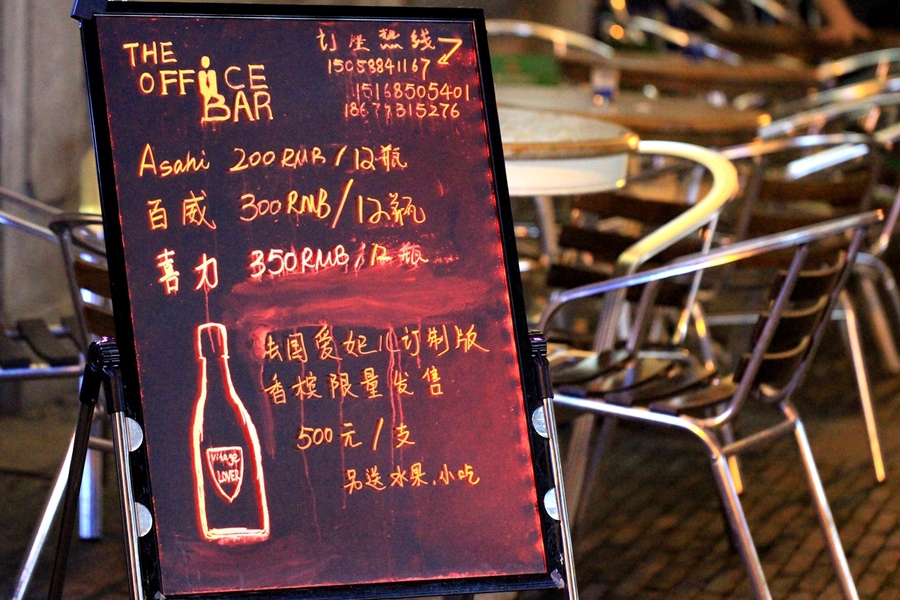 THE
OFFiCE
BAR
订座热线
15058841167
15168505401
18677315276
Asahi 200RMB/12瓶
百威 300RMB/12瓶
喜力 350RMB/12瓶
法国爱妃儿订制版
香槟限量发售
500元/支
另送水果.小吃
LOVER